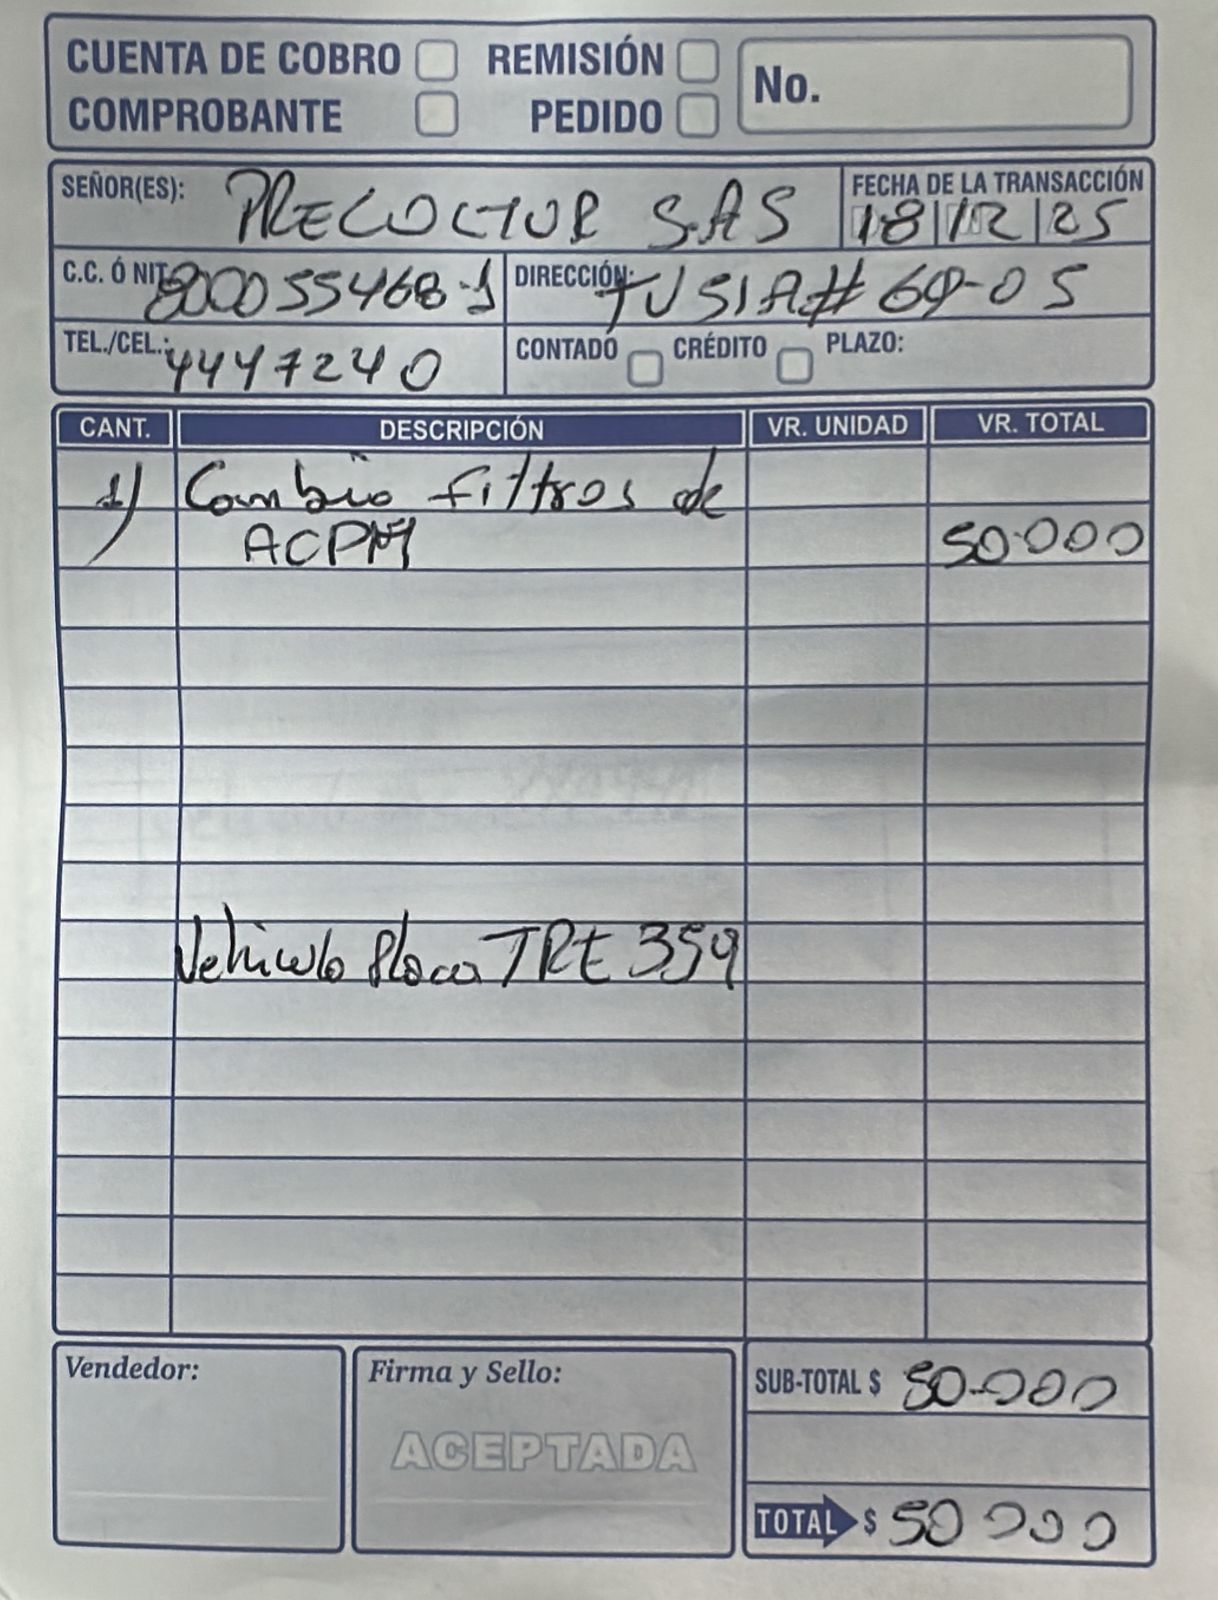 CUENTA DE COBRO REMISIÓN No.
COMPROBANTE PEDIDO
SEÑOR(ES): PRECOCTUR S.A.S FECHA DE LA TRANSACCIÓN
18|12|25
C.C. Ó NIT 800055468-1 DIRECCIÓN: TV 51A# 69-05
TEL./CEL.: 4447240 CONTADO CRÉDITO PLAZO:
CANT. DESCRIPCIÓN VR. UNIDAD VR. TOTAL
1) Cambio filtros de
ACPM 50.000
Vehiculo placa TRE 359
Vendedor: Firma y Sello: SUB-TOTAL $ 50.000
ACEPTADA
TOTAL $ 50 000